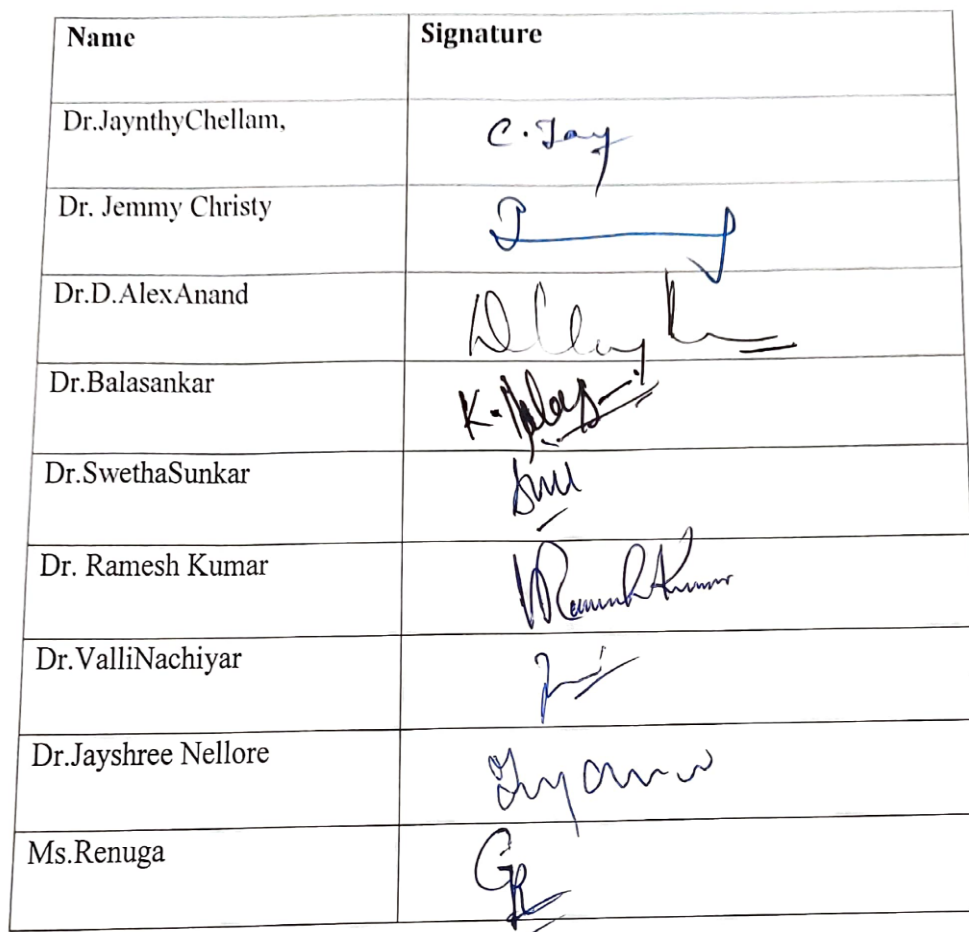 Name Signature
Dr.JaynthyChellam, C. Jay
Dr. Jemmy Christy
Dr.D.AlexAnand
Dr.Balasankar K.
Dr.SwethaSunkar
Dr. Ramesh Kumar Ramesh Kumar
Dr.ValliNachiyar
Dr.Jayshree Nellore
Ms.Renuga